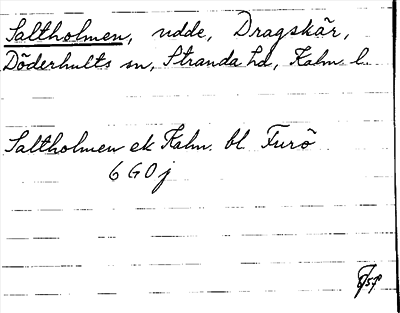 Saltholmen, udde, Dragskär,
Döderhults sn, Stranda hd, Kalm. l.
Saltholmen ek Kalm. bl Furö
6 G 0 j